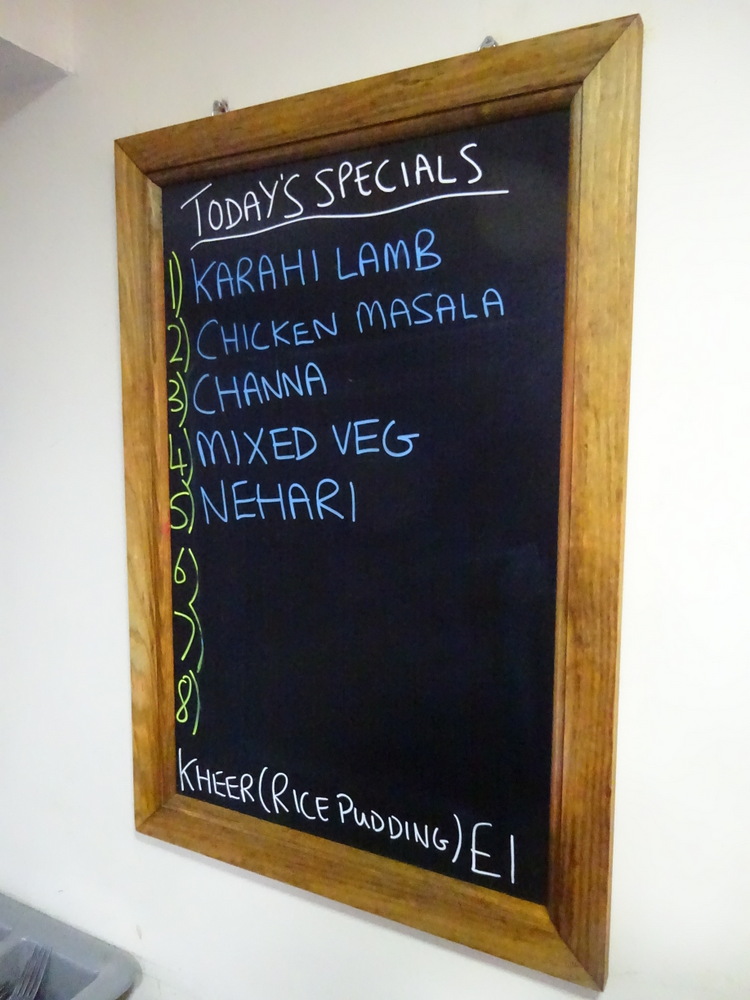 TODAY'S SPECIALS
1) KARAHI LAMB
2) CHICKEN MASALA
3) CHANNA
4) MIXED VEG
5) NEHARI
6)
7)
8)
KHEER (RICE PUDDING) £1